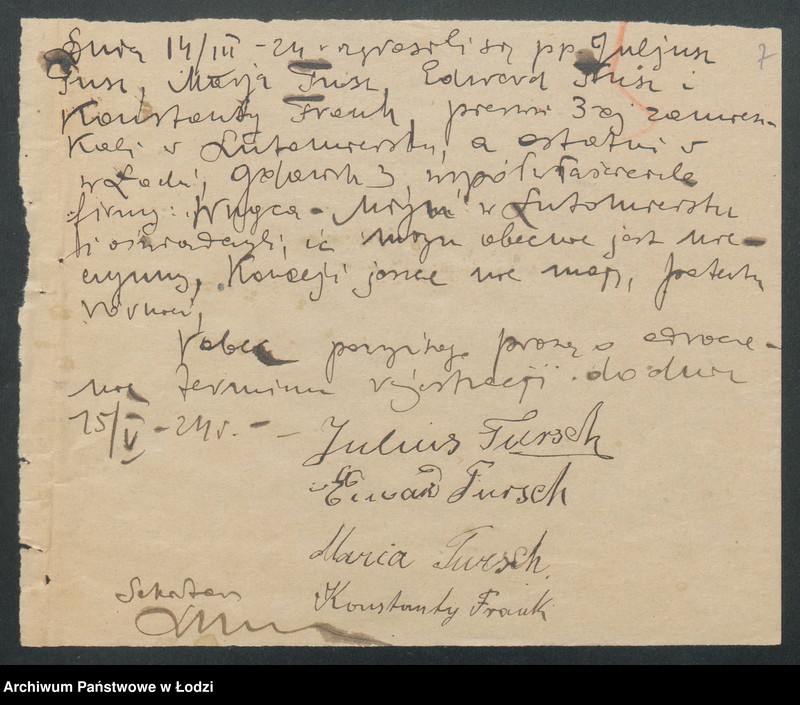 Dnia 14/III - 24 r. zgłosili się pp. Juljusz 7
Tusz, Marja Tusz, Edward Tusz i
Konstanty Frank, pierwsi 3ej zamiesz-
kali w Lutomiersku, a ostatni w
w Łodzi, 3, współwłaściciele
firmy: "Młyn" w Lutomiersku
i oświadczyli, iż młyn obecnie jest nie-
czynny, koncesji jeszcze nie mają, patentu
również,
Wobec powyższego proszą o odrocze-
nie terminu rejestracji do dnia
15/V - 24 r. -
Julius Tursch
Edward Tursch
Maria Tursch.
Sekretarz
Konstanty Frank
Archiwum Państwowe w Łodzi